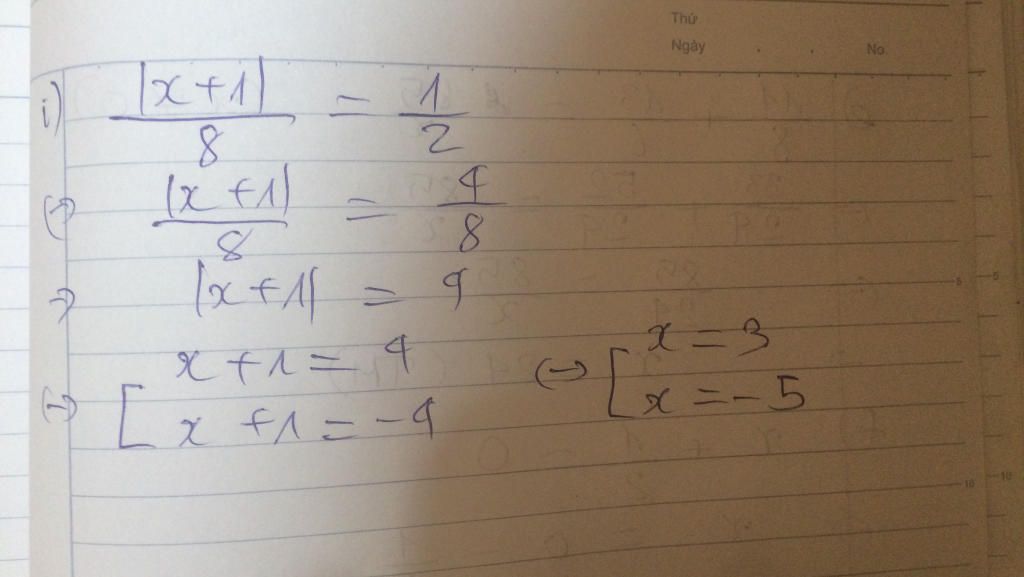 Thứ
Ngày . . No
i) |x+1|/8 = 1/2
(-) |x+1|/8 = 4/8
-) |x+1| = 4
(-) [ x+1 = 4
x+1 = -4
(-) [ x = 3
x = -5
5
5
10
10